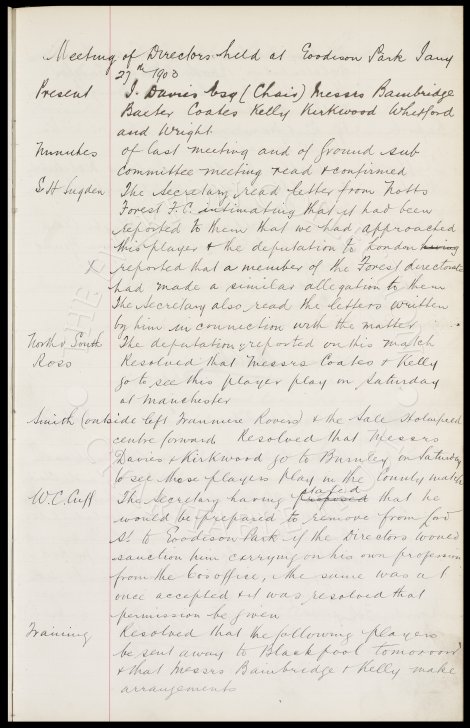 Meeting of Directors held at Goodison Park Jany
27th 1903
Present J. Davies Esq (Chair) Messrs Bainbridge
Baxter Coates Kelly Kirkwood Whitford
and Wright
Minutes of last meeting and of Ground sub
committee meeting read & confirmed
S. H. Sugden The Secretary read letter from Notts
Forest F.C. intimating that it had been
reported to them that we had approached
this player & the deputation to London having
reported that a member of the Forest directorate
had made a similar allegation to them
The Secretary also read the letters written
by him in connection with the matter
North v South The deputation reported on this match
Ross Resolved that Messrs Coates & Kelly
go to see this player play on Saturday
at Manchester
Smith (outside left Tranmere Rovers) & the Sale Holmfield
centre forward Resolved that Messrs
Davies & Kirkwood go to Burnley on Saturday
to see these players play in the County match
W. C. Cuff The Secretary having proposed stated that he
would be prepared to remove from Lord
St. to Goodison Park if the Directors would
sanction him carrying on his own profession
from the Co's office, the same was at
once accepted & it was resolved that
permission be given
Training Resolved that the following players
be sent away to Blackpool tomorrow
& that Messrs Bainbridge & Kelly make
arrangements